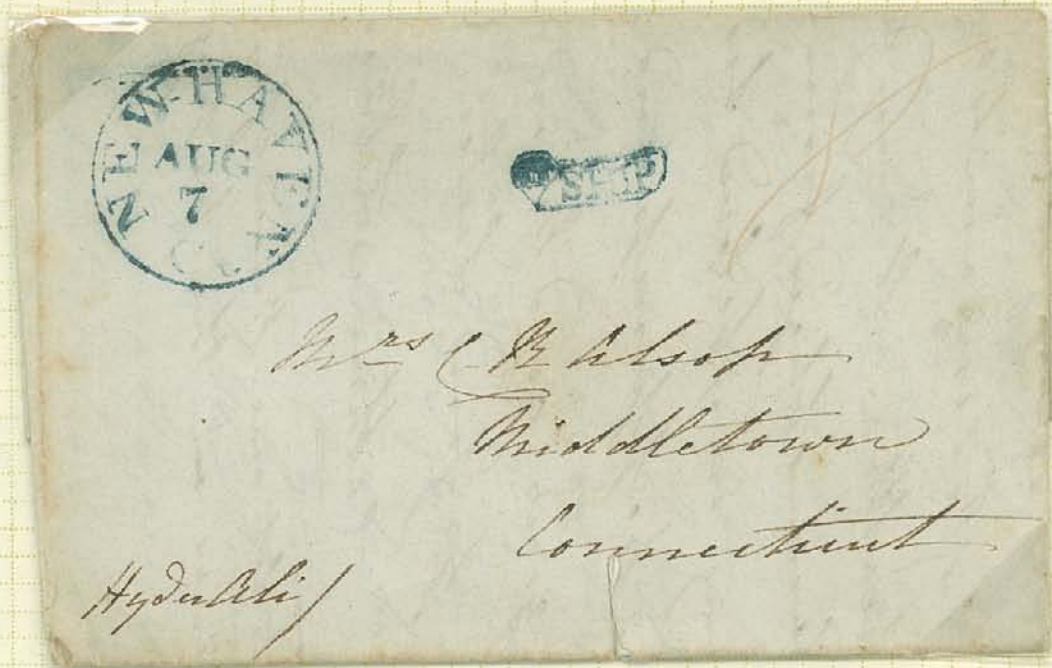 NEW-HAVEN
AUG
7
Ct.
SHIP
8
Mrs C R Alsop
Middletown
Connecticut
Hyder Ali